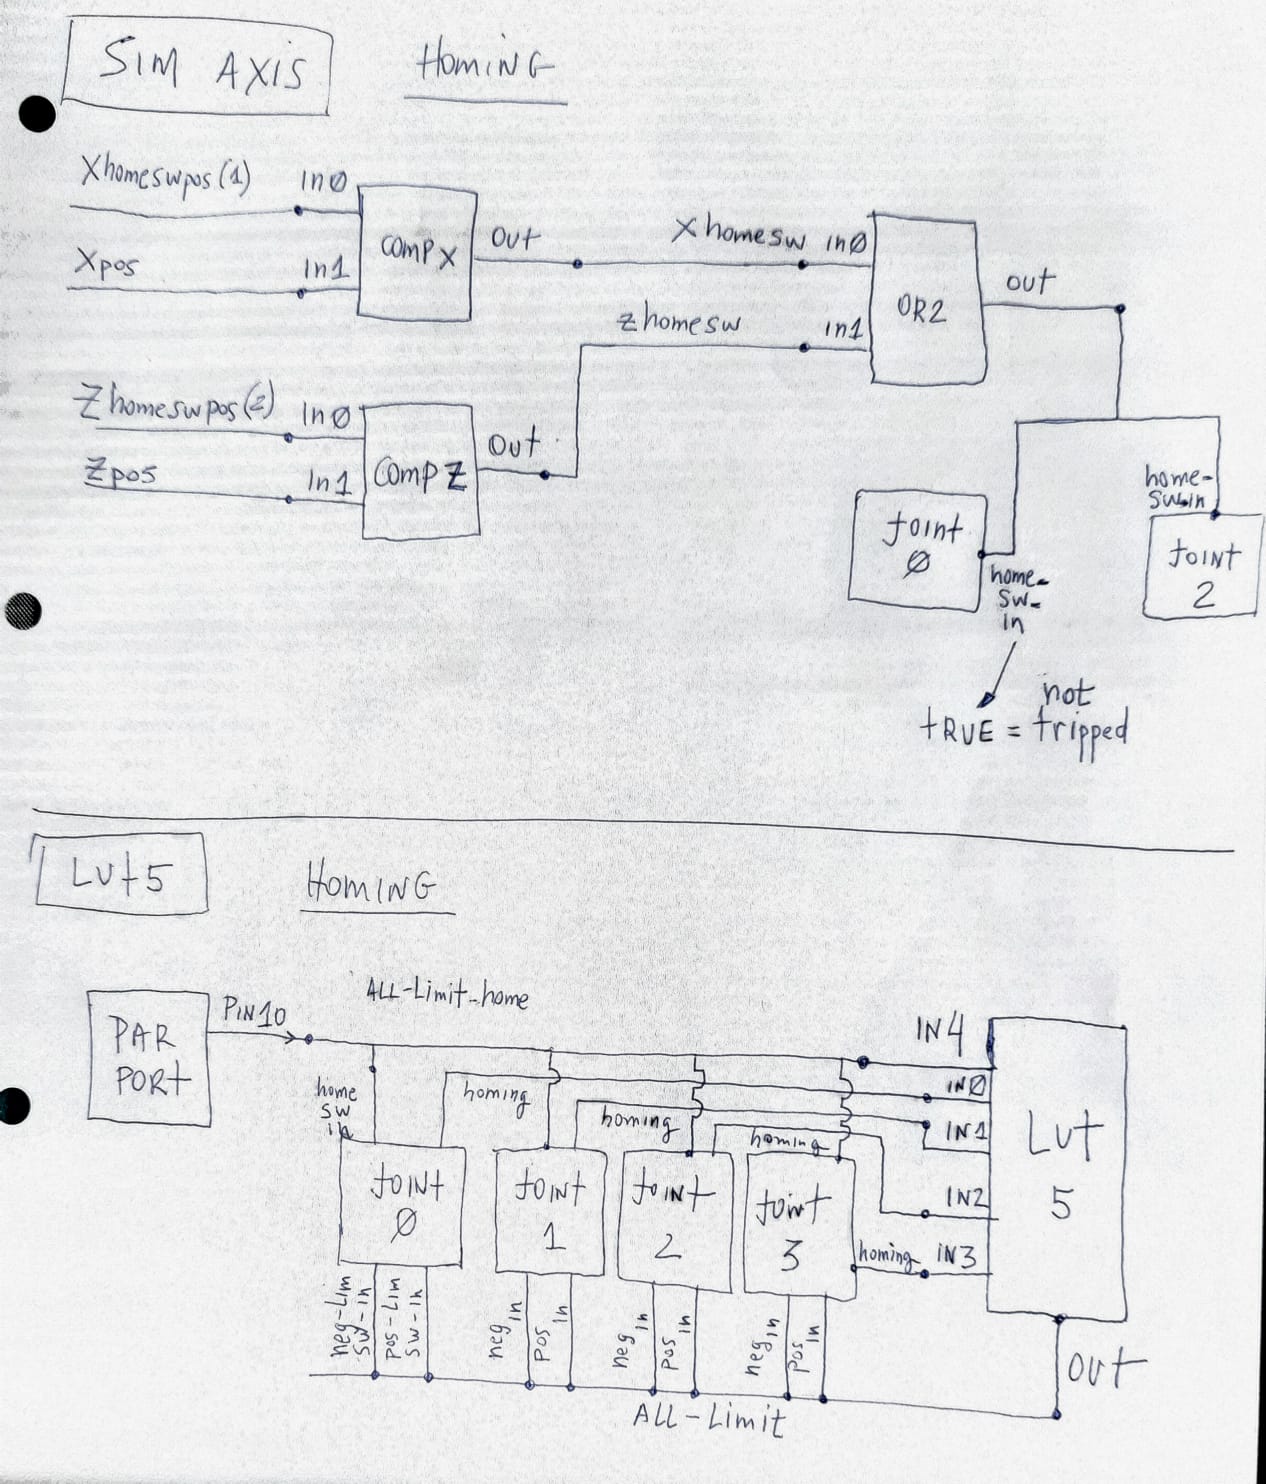 SIM AXIS
HomING
Xhomeswpos(1)
In0
Xpos
In1
COMP X
Out
Xhomesw
in0
zhomesw
in1
OR2
out
Zhomeswpos(2)
In0
Zpos
In1
COMP Z
Out
JOINT
0
home-
sw-
in
home-
sw-in
JOINT
2
not
tRUE = tripped
LUt5
HOMING
PAR
PORt
PiN10
ALL-Limit-home
home
sw
in
homing
homing
homing
homing
IN4
IN0
IN1
IN2
IN3
LUt
5
JOINT
0
JOINT
1
JOINT
2
JOINT
3
neg-Lim
sw-in
pos-Lim
sw-in
neg in
pos in
neg in
pos in
neg in
pos in
ALL-Limit
OUt